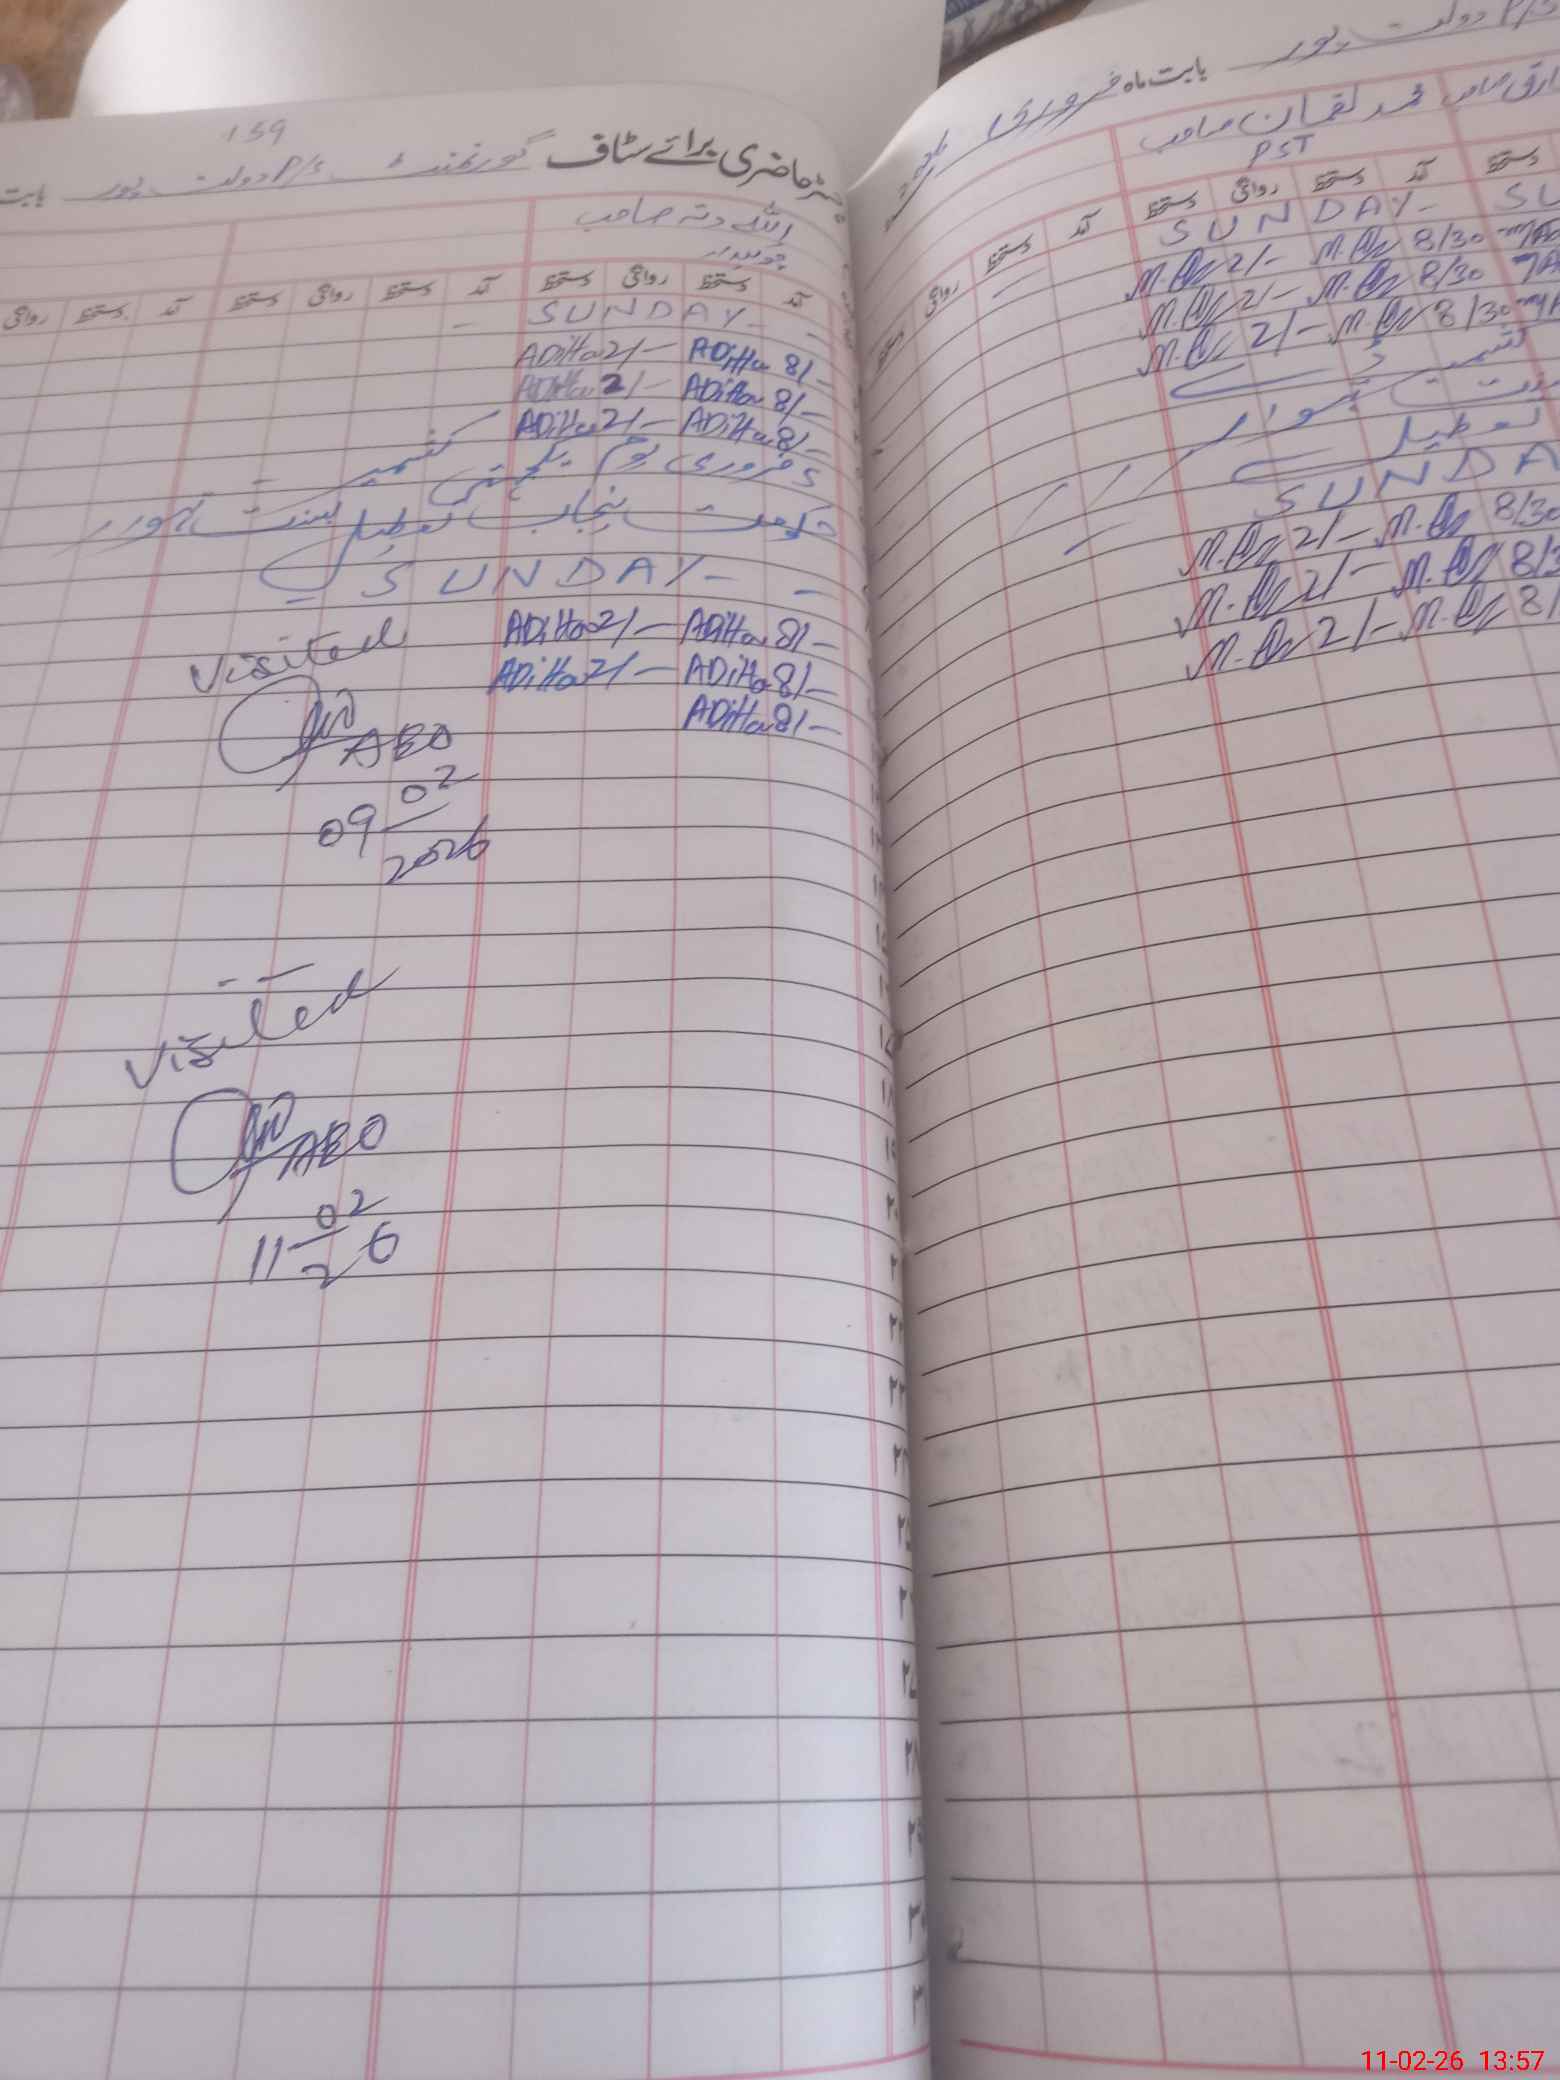 159
رجسٹر حاضری برائے سٹاف گورنمنٹ P/S دولت پور بابت
اللہ دتہ صاحب
چوکیدار
آمد دستخط روانگی دستخط آمد دستخط روانگی دستخط آمد دستخط روانگی
SUNDAY
ADitta 2/- ADitta 8/-
ADitta 2/- ADitta 8/-
ADitta 2/- ADitta 8/-
5 فروری یوم یکجہتی کشمیر
حکومت پنجاب تعطیل بسنت تہوار
SUNDAY
ADitta 2/- ADitta 8/-
ADitta 2/- ADitta 8/-
ADitta 8/-
Visited
AEO
09 02
2026
Visited
AEO
11 02
26
P/S دولت پور بابت ماہ فروری
محمد لقمان صاحب
PST
دستخط آمد دستخط روانگی دستخط آمد دستخط روانگی دستخط
SUNDAY SU
2/- 8/30
2/- 8/30
2/- 8/30
کشمیر ڈے
بسنت تہوار
تعطیل
SUNDA
2/- 8/30
2/- 8/3
2/- 8/
11-02-26 13:57